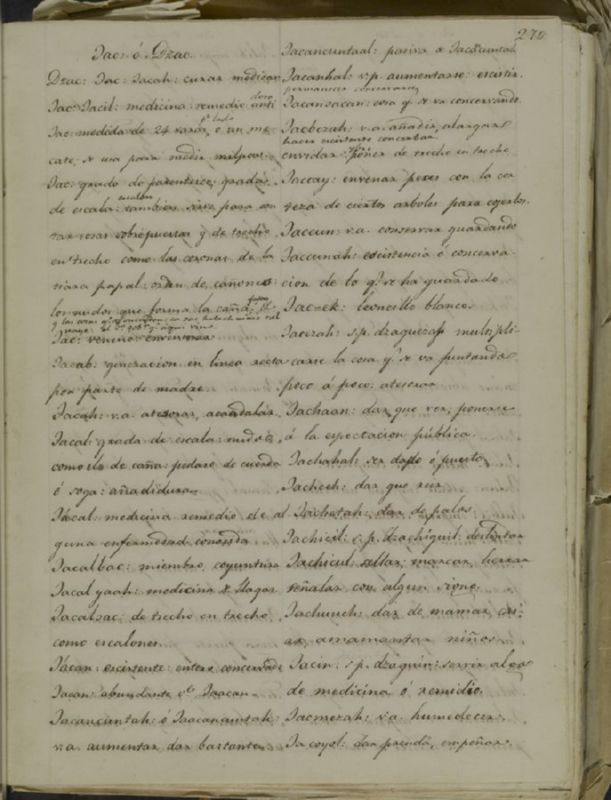 270
Jac: ó Dzac.
Dzac: Jac: Jacah: curar medicar
Jac: Jacil: medicina: remedio anti
doto
Jac: medida de 24 varas, ó un me
pr lado
cate, se usa para medir milpas.
Jac: grado de parentesco, gradas
de escala: tambien sirve para con
escalon
tar cosas sobrepuestas y de trecho
en trecho como las coronas de la
tiara papal: orden de cañones
torneados que forma la caña:
Jac: veneno envenenar
Jacab: generacion en linea recta
por parte de madre.
Jacah: v.a. atesorar, acaudalar
Jacal: grada de escala: nudos
como los de caña: pedazo de cuerda
ó soga: añadidura
Jacal: medicina remedio de al
guna enfermedad conosida
Jacalbac: miembro, coyuntura
Jacal yaah: medicina de llagas
Jacalzac: de trecho en trecho
como escalones
Jacan: ecsistente: entero concervado
Jacan: abundante
Jacancuntah: ó Jaacancuntah:
v.a. aumentar dar bastante
Jacancuntaal: pasiva de Jacancuntah
Jacanhal: v.p. aumentarse: ecsistir
permanecer concervarse
Jacanzacan: cosa q. se va concervando.
Jacbezah: v.a. añadir, alargar
hacer ecsistente concerbar
envidar: poner de trecho en trecho
Jaccay: envenar peces con la cor
teza de ciertos arboles para cojerlos.
Jaccun: v.a. conservar guardando
Jaccunah: ecsistencia ó concerva
cion de lo q. se ha guardado
Jac-ek: leoncillo blanco
Jaczah: s.p. dzaquezah multipli
carse la cosa q. se va juntando
poco á poco: atesorar
Jachaan: dar que ver, ponerse
á la espectacion pública
Jachahal: ser dado ó puesto
Jacheeh: dar que reir
Jachetah: dar de palos
Jachicil: s.p. dzachiguil: destinar
Jachicul: sellar, marcar, herrar
señalar con algun signo
Jachuuch: dar de mamar, cri-
ar, amamantar niños
Jacin: s.p. dzaquin: servir algo
de medicina ó remidio.
Jacmezah: v.a. humedecer.
Ja coyol: dar prenda, empeñar